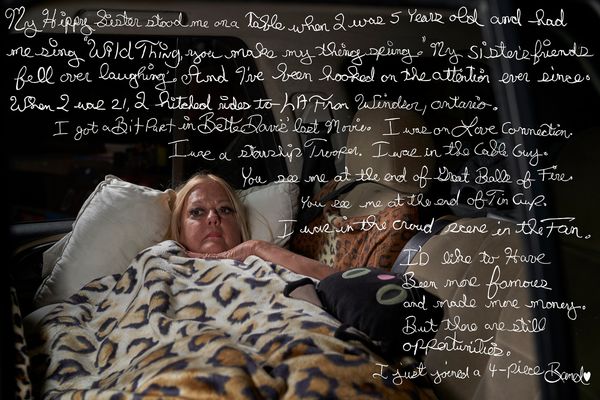 My Hippy Sister stood me on a Table when I was 5 Years old and had
me sing "Wild Thing, you make my thing spring." My sister's friends
fell over laughing. And I've been hooked on the attention ever since.
When I was 21, I hitched rides to LA from Windsor, Ontario.
I got a Bit Part in Bette Davis' last Movie. I was on Love Connection.
I was a starship Trooper. I was in the Cable Guy.
You see me at the end of Great Balls of Fire.
You see me at the end of Tin Cup.
I was in the croud scene in the Fan.
I'd like to Have
Been more famous
and made more money.
But there are still
opportunities.
I just joined a 4-piece Band♥